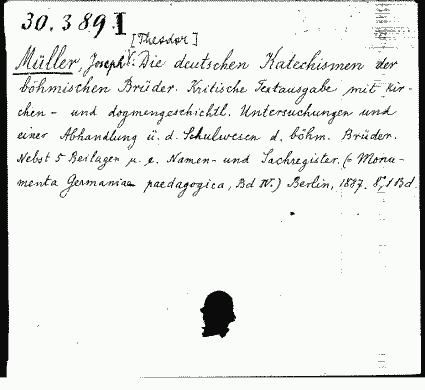 30.389 I
[Theodor]
Müller, Joseph: Die deutschen Katechismen der
böhmischen Brüder. Kritische Textausgabe mit kir-
chen- und dogmengeschichtl. Untersuchungen und
einer Abhandlung ü. d. Schulwesen d. böhm. Brüder.
Nebst 5 Beilagen u. e. Namen- und Sachregister. (= Monu-
menta Germaniae paedagogica, Bd IV.) Berlin, 1887. 8°, 1 Bd.